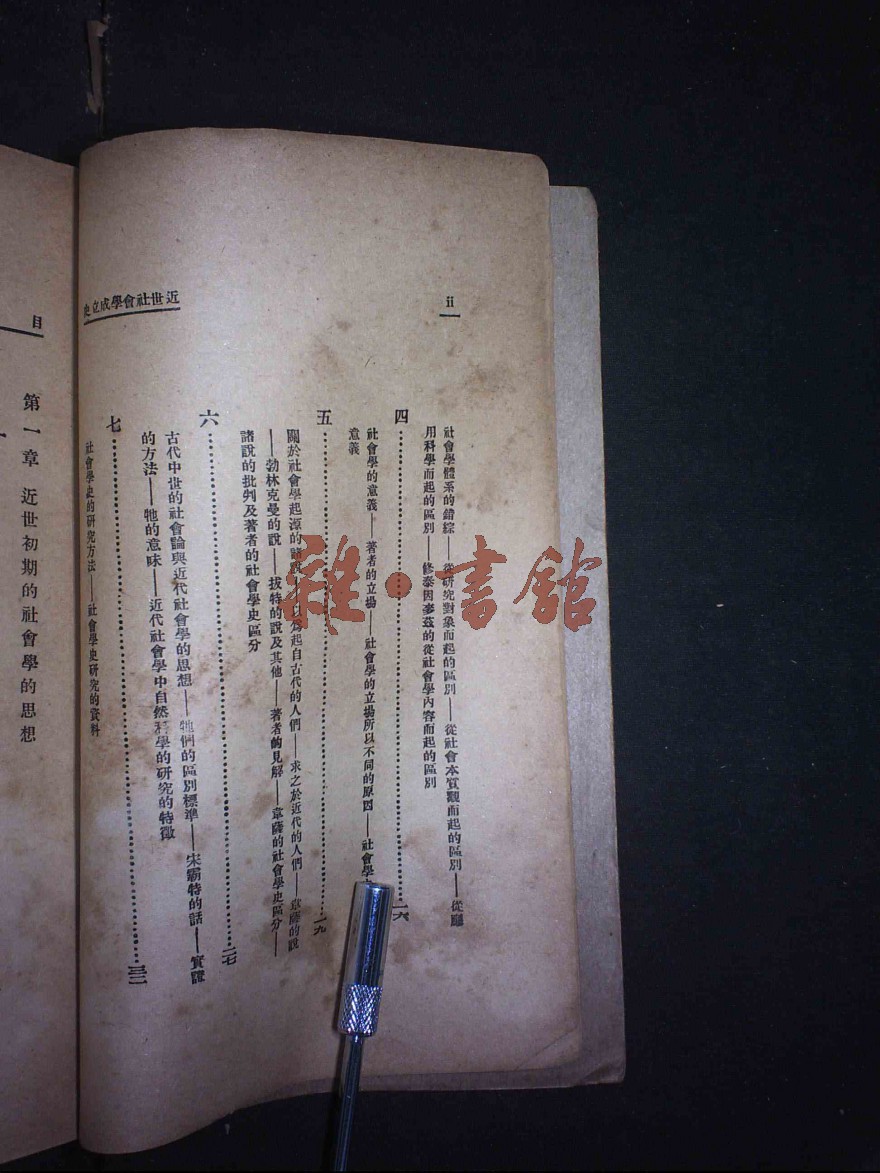 近世社會學成立史
ii
社會學體系的錯綜——從研究對象而起的區別——從社會本質觀而起的區別——從應
用科學而起的區別——修泰因麥茲的從社會學內容而起的區別
四……一六
社會學的意義——著者的立場——社會學的立場所以不同的原因——社會學
意義
五……一九
關於社會學起源的諸說——以爲起自古代的人們——求之於近代的人們——韋薩的說
——勃林克曼的說——拔特的說及其他——著者的見解——韋薩的社會學史區分——
諸說的批判及著者的社會學史區分
六……二七
古代中世的社會論與近代社會學的思想——牠們的區別標準——宋霸特的話——實證
的方法——牠的意味——近代社會學中自然科學的研究的特徵
七……三二
社會學史的研究方法——社會學史研究的資料
目
第一章 近世初期的社會學的思想
一
雜·書館